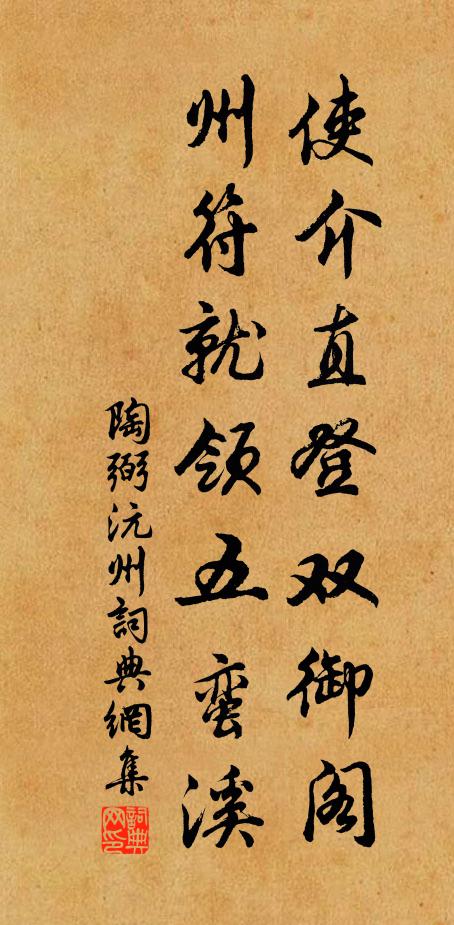 使介直登双御阁
州符就领五蛮溪
陶弼沅州詞典網集
詞典网印